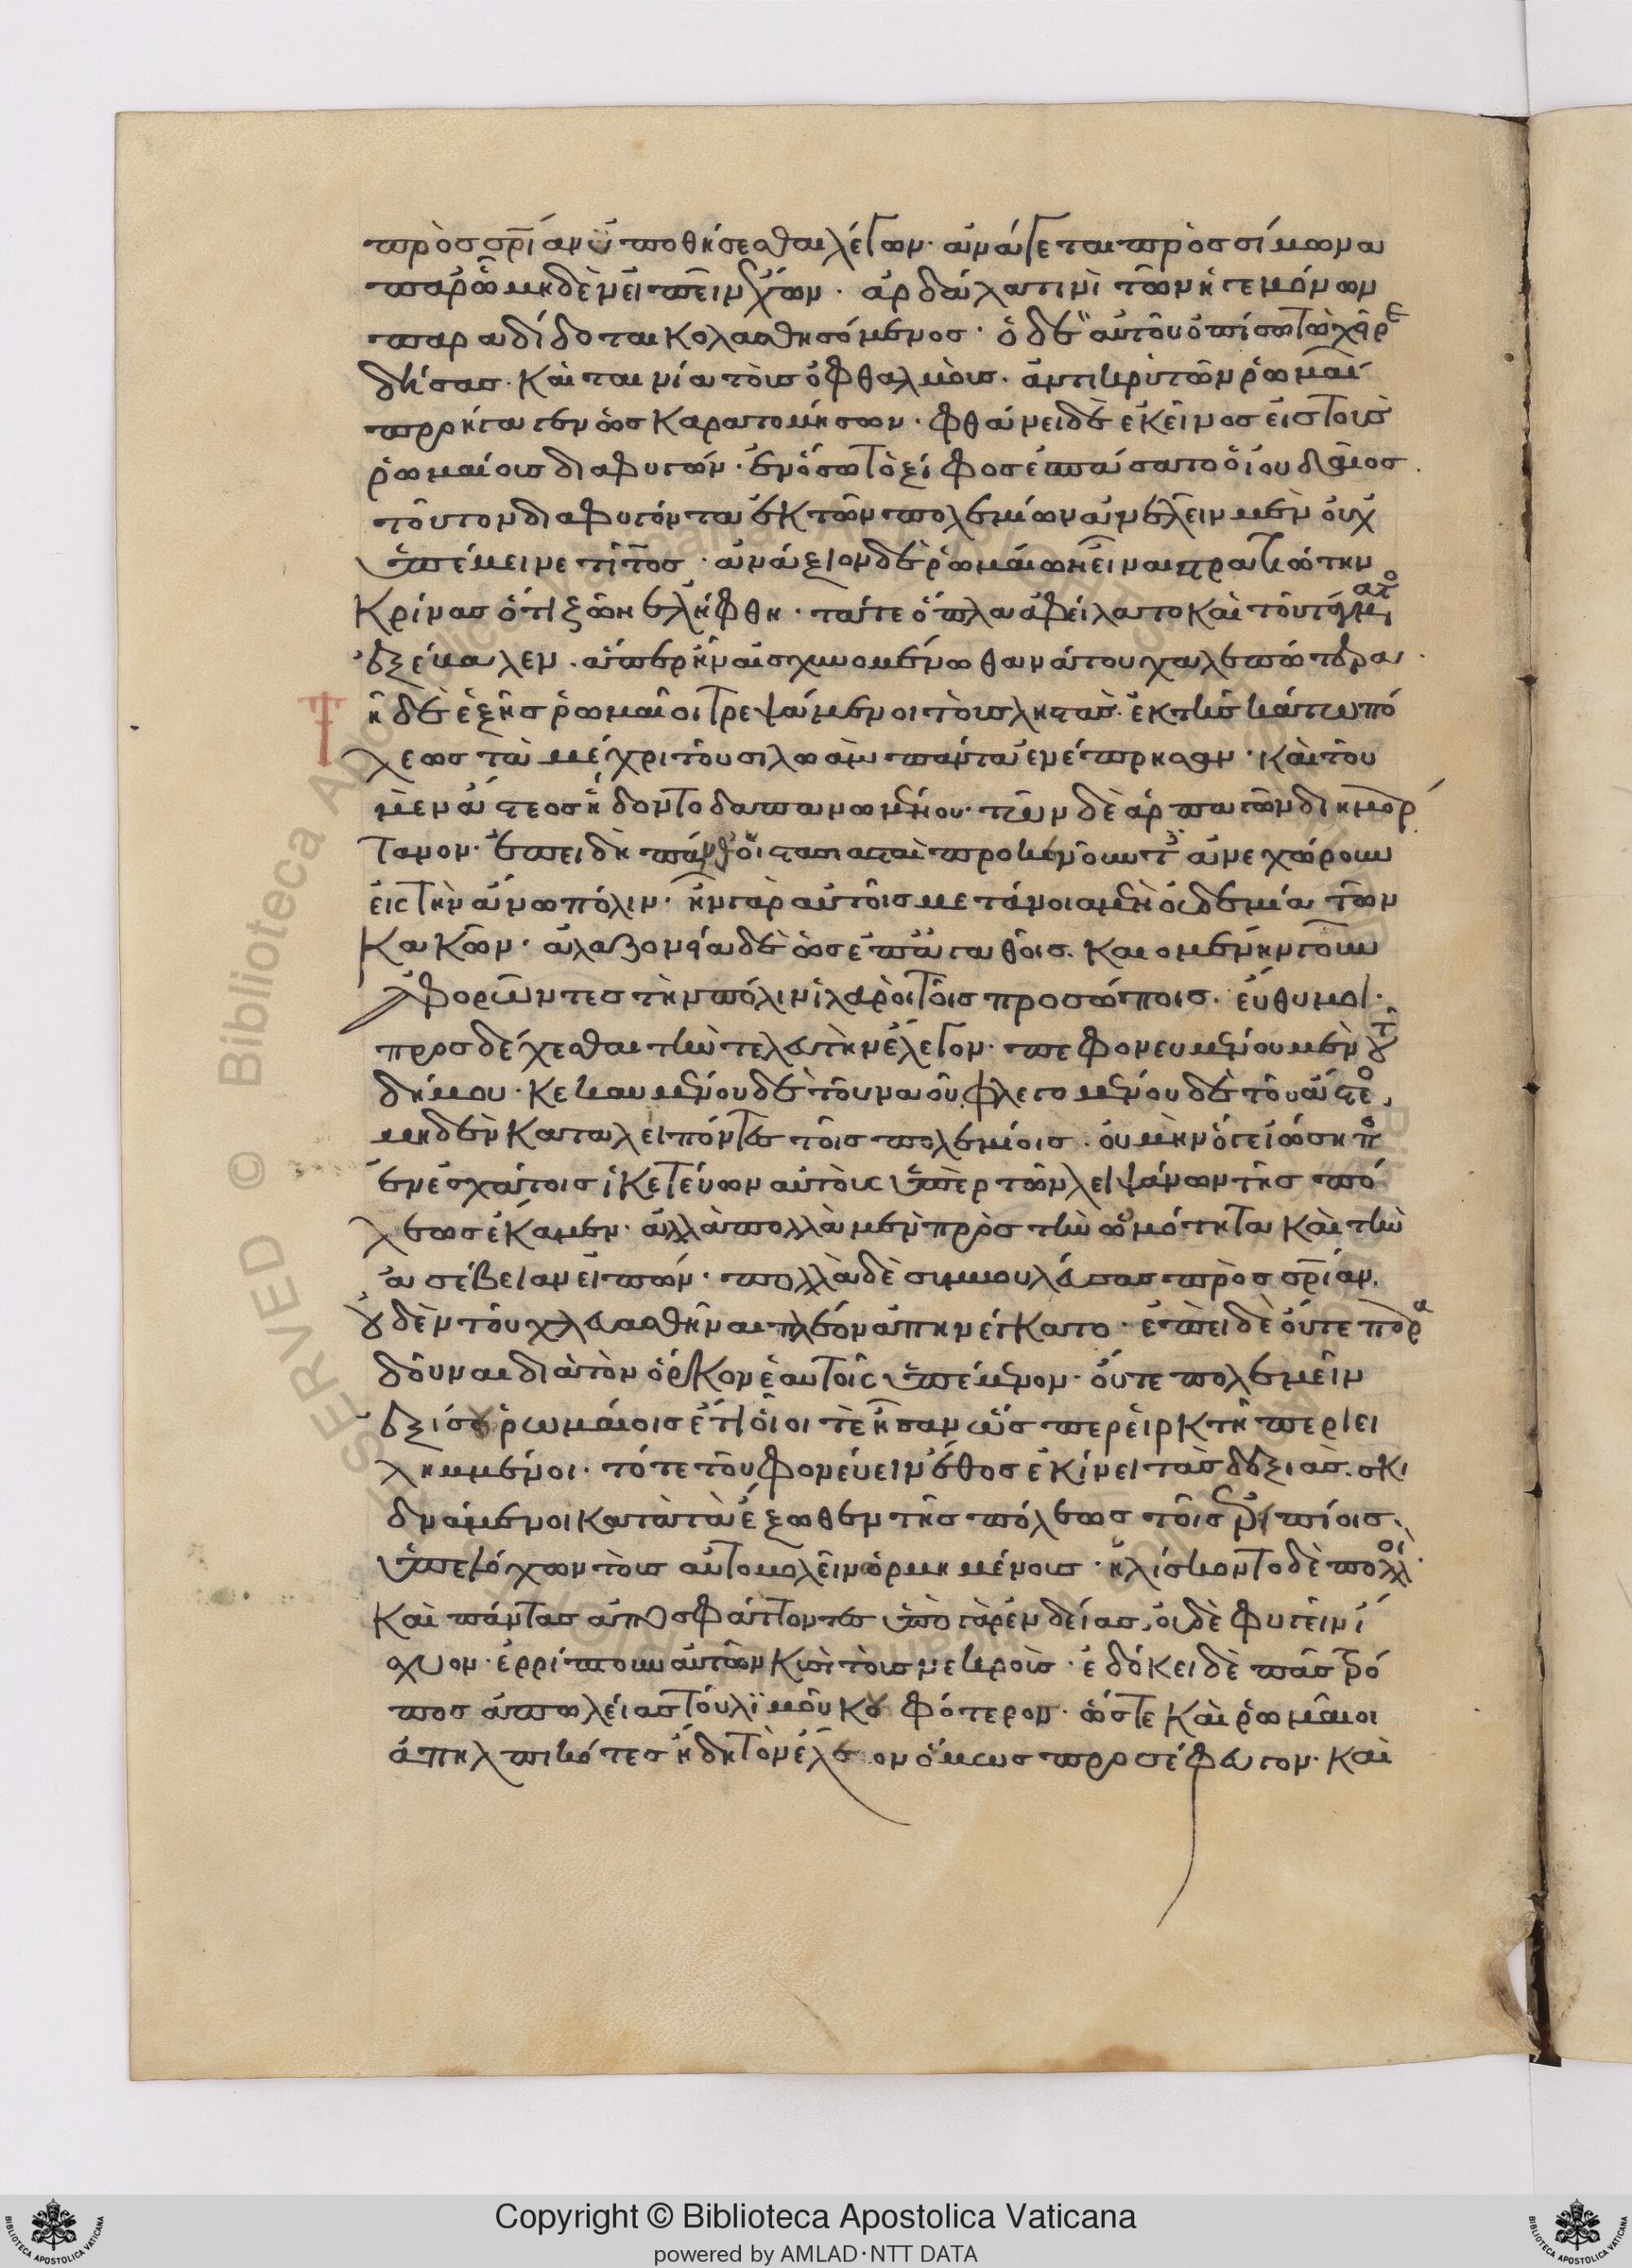 πρὸς σρίαν ὑποθήσεσθαι λέγων· ἀνάγεται πρὸς σίμωνα
παρ' ᾧ μηδὲν εἰπεῖν ἔχων· ἀρδάλᾳ τινὶ τῶν ἡγεμόνων
παραδίδοται κολασθησόμενος· ὁ δὲ αὐτοῦ ὀπίσω τὼ χεῖρε
δήσας· καὶ ταινίᾳ τοὺς ὀφθαλμοὺς· ἀντικρὺ τῶν ῥωμαί
προήγαγεν ὡς καρατομήσων· φθάνει δὲ ἐκεῖνος εἰς τοὺς
ῥωμαίους διαφυγών· ἐν ὅσῳ τὸ ξίφος ἐσπάσατο ὁ ἰουδαῖος.
τοῦτον διαφυγόντα ἐκ τῶν πολεμίων ἀνελεῖν μὲν οὐχ
ὑπέμεινε τίτος· ἀνάξιον δὲ ῥωμαίων εἶναι στρατιώτην
κρίνας ὅτι ζῶν ἐλήφθη· τά τε ὅπλα ἀφείλατο καὶ τοῦ τάγματο
ἐξέβαλεν· ἅπερ ἦν αἰσχυνομένῳ θανάτου χαλεπώτερα.
Τῇ δὲ ἑξῆς ῥωμαῖοι τρεψάμενοι τοὺς ληστὰς ἐκ τῆς κάτω πό
λεως τὰ μέχρι τοῦ σιλωὰμ πάντα ἐνέπρησαν· καὶ τοῦ
μὲν ἄστεος ἥδοντο δαπανωμένου· τῶν δὲ ἁρπαγῶν διημάρ
τανον· ἐπειδὴ πάνθ' οἱ στασιασταὶ προκενοῦντες ἀνεχώρουν
εἰς τὴν ἄνω πόλιν· ἦν γὰρ αὐτοῖς μετάνοια μὲν οὐδεμία τῶν
κακῶν· ἀλαζονεία δὲ ὡς ἐπ' ἀγαθοῖς· καιομένην γοῦν
ἀφορῶντες τὴν πόλιν ἱλαροὶ τοῖς προσώποις· εὔθυμοι·
προσδέχεσθαι τὴν τελευτὴν ἔλεγον· πεφονευμένου μὲν τοῦ
δήμου· κεκαυμένου δὲ τοῦ ναοῦ φλεγομένου δὲ τοῦ ἄστεο,
μηδὲν καταλείποντες τοῖς πολεμίοις· οὐ μὴν ὅγε ἰώσηπο
ἐν ἐσχάτοις ἱκετεύων αὐτοὺς ὑπὲρ τῶν λειψάνων τῆς πό
λεως ἔκαμεν· ἀλλὰ πολλὰ μὲν πρὸς τὴν ὠμότητα καὶ τὴν
ἀσέβειαν εἰπών· πολλὰ δὲ συμβουλεύσας πρὸς σρίαν·
οὐδὲν τοῦ χλευασθῆναι πλέον ἀπηνέγκατο· ἐπεὶ δὲ οὔτε παρα
δοῦναι διὰ τὸν ὅρκον ἑαυτοῖς ὑπέμενον· οὔτε πολεμεῖν
ἐξίσου ῥωμαίοις ἔτι οἷοι τὲ ἦσαν ὥσπερ εἱρκτῇ περιει
λημμένοι· τό τε τοῦ φονεύειν ἔθος ἐκίνει τὰς δεξιὰς· σκι
δνάμενοι κατὰ τὰ ἔξωθεν τῆς πόλεως τοῖς ἐρειπίοις
ὑπελόχων τοὺς αὐτομολεῖν ὡρμημένους· ἡλίσκοντο δὲ πολλοί·
καὶ πάντας ἀποσφάττοντες ὑπὸ γὰρ ἐνδείας, οὐδὲ φυγεῖν ἴ
σχυον· ἐρρίπτουν αὐτῶν κυσὶ τοὺς νεκροὺς· ἐδόκει δὲ πᾶς τρό
πος ἀπωλείας τοῦ λϊμοῦ κουφότερον· ὥστε καὶ ῥωμαίοι
ἀπηλπικότες ἤδη τὸν ἔλεον ὅμως προσέφευγον· καὶ